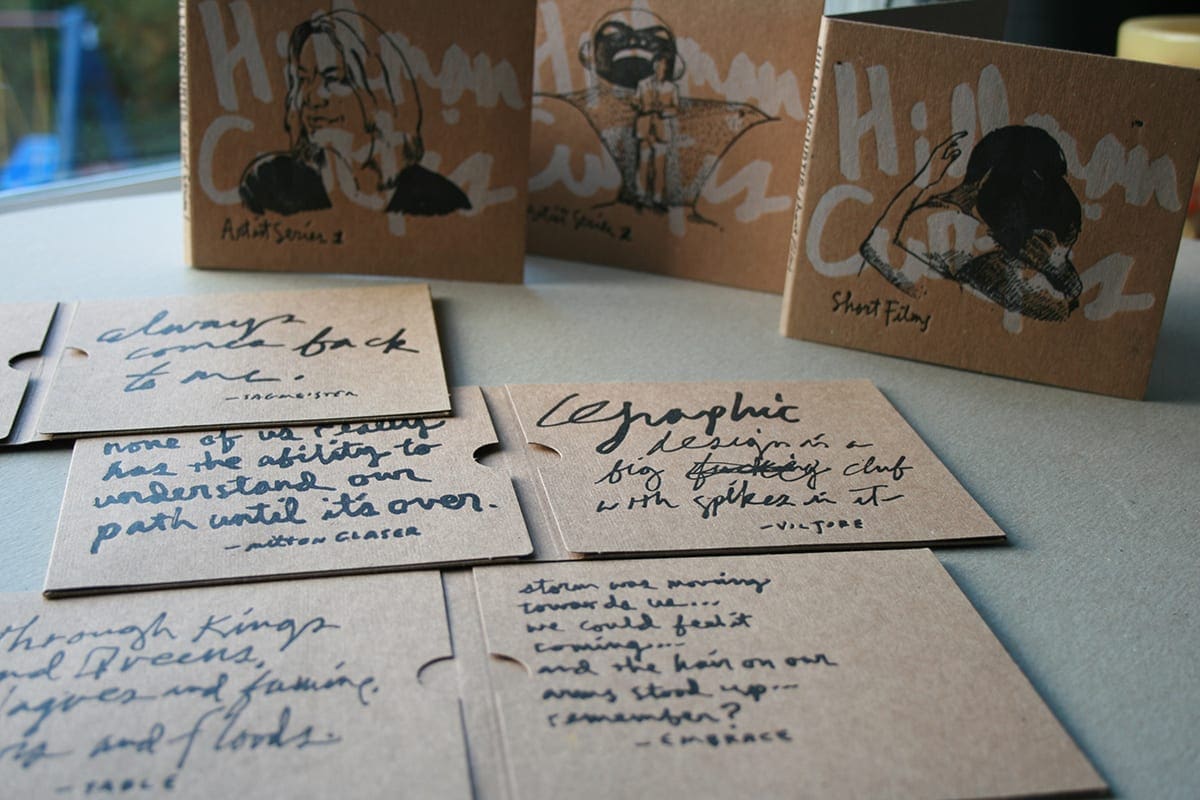 Hillman
Curtis
Artist Series 1
Hillman
Curtis
Artist Series 2
Hillman
Curtis
Short Films
always
comes back
to me.
—SAGMEISTER
none of us really
has the ability to
understand our
path until it's over.
—MILTON GLASER
Graphic
design is a
big fucking club
with spikes in it
—VIC TORE
through Kings
and Queens,
and famine.
and floods.
—TABLE
storm was moving
towards us...
we could feel it
coming...
and the hair on our
arms stood up...
remember?
—EMBRACE